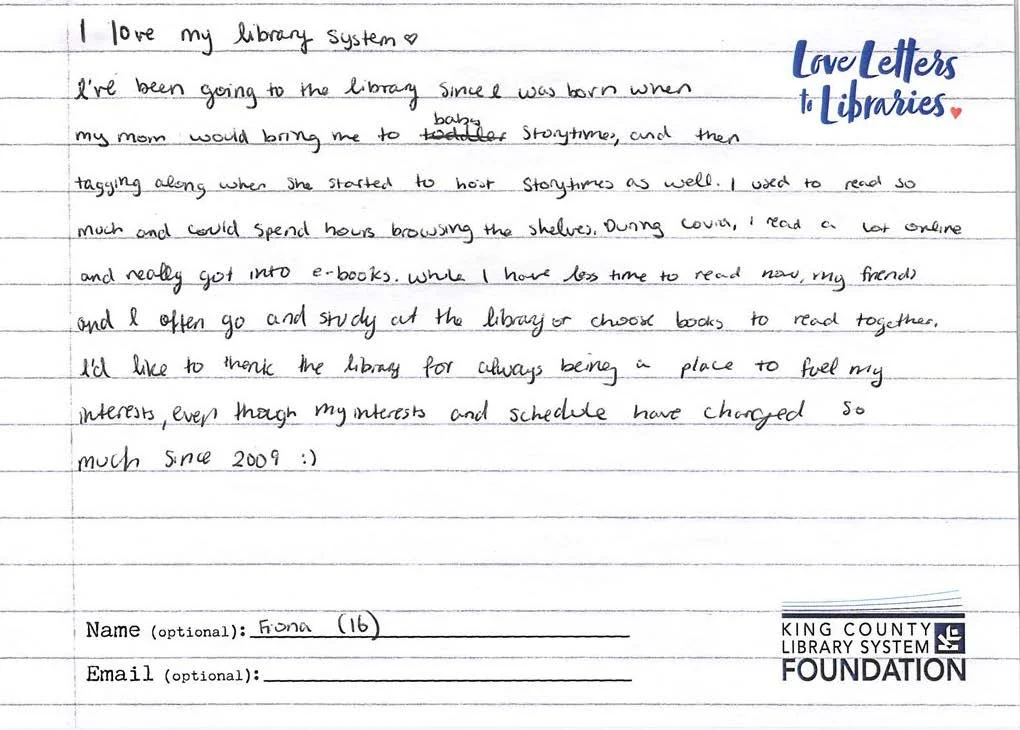 I love my library system ♡
Love Letters
to Libraries.
I've been going to the library since I was born when
my mom would bring me to baby toddler storytimes, and then
tagging along when she started to host storytimes as well. I used to read so
much and could spend hours browsing the shelves. During covid, I read a lot online
and really got into e-books. While I have less time to read now, my friends
and I often go and study at the library or choose books to read together.
I'd like to thank the library for always being a place to fuel my
interests, even though my interests and schedule have changed so
much since 2009 :)
Name (optional): Fiona (16)
Email (optional):
KING COUNTY
LIBRARY SYSTEM
FOUNDATION